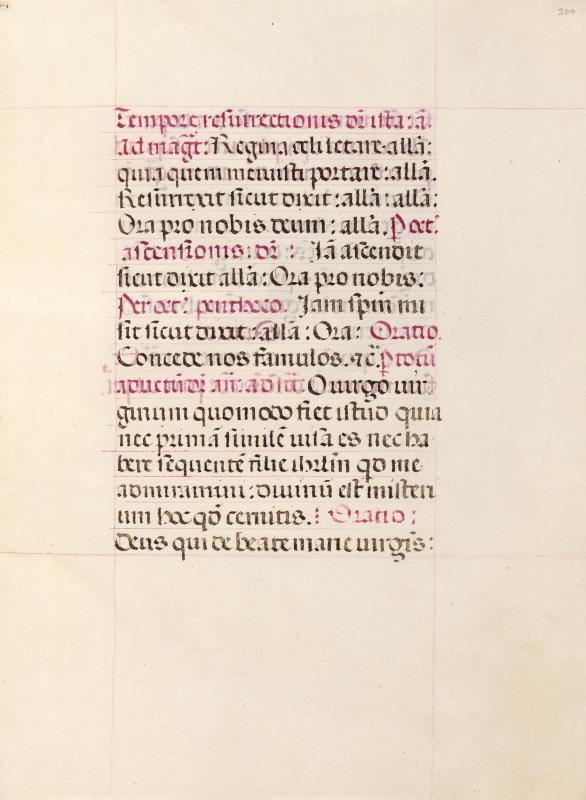 200
Tempore resurrectionis dñi ista: añ.
ad magẽ: Regina celi letare. allã:
quia quem meruisti portare: allã.
Resurrexit sicut dixit: allã: allã:
Ora pro nobis deum: allã. P oct̃.
ascensionis: dñi: Iã ascendit
sicut dixit allã: Ora pro nobis:
Per oct̃. pentheco. Iam spm̃ mi
sit sicut dixit: allã: Ora: Oratio.
Concede nos famulos. ⁊c̃. P totũ
aduentũ dñi añ. ad O uirgo uir
ginum quomodo fiet istud quia
nec primã similẽ uisa es nec ha
bere sequentẽ filie ihrlm̃ qd me
admiramini: diuinũ est misteri
um hoc qd̃ cernitis.: Oratio:
Deus qui de beate marie uirgĩs: